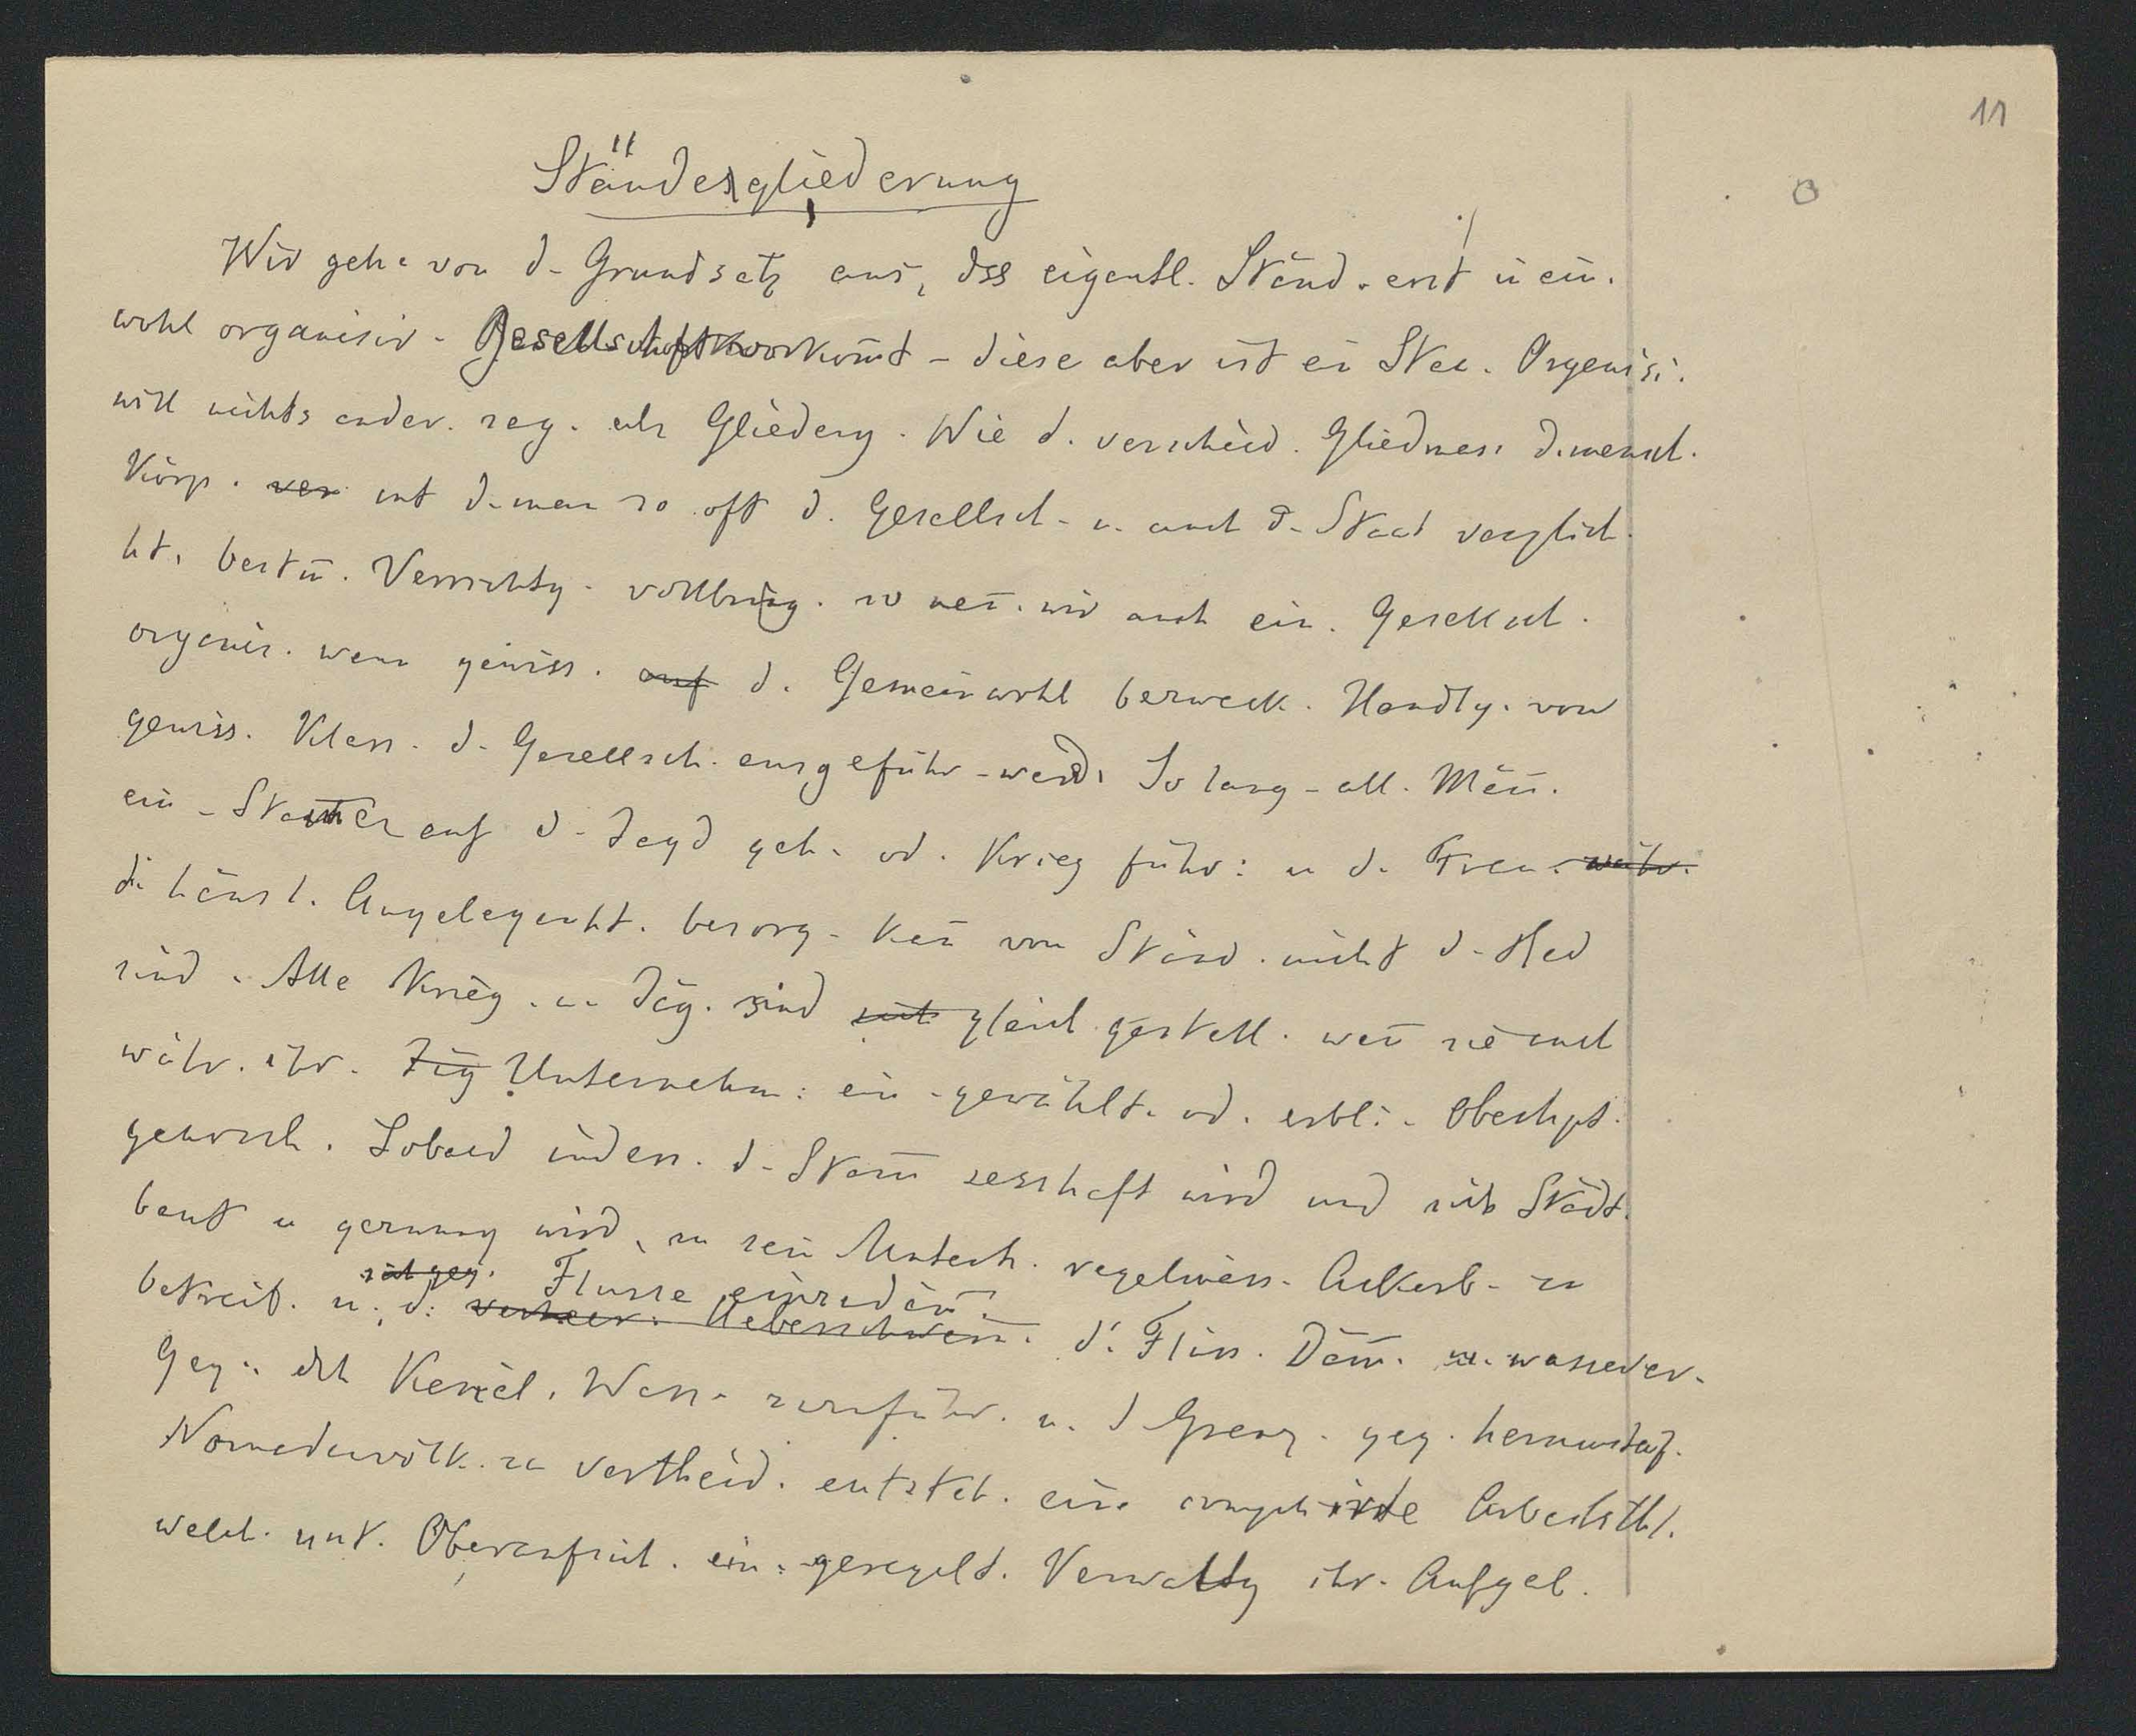 11
Ständegliederung
Wir gehe von d. Grundsatz aus, dss eigentl. Ständ. erst in ein.
wohl organisir. Gesellschaft vorkom̄t - diese aber ist ein Organisi.
will nichts ander. sag. als Gliederg. Wie d. verschied. Gliedmass. d. mensch.
Körp. ver mit d. man so oft d. Gesellsch. u. auch d. Staat verglich.
ht, bestim̄. Verrichtg. vollbring. so nen̄. wir auch ein. Gesellsch.
organis. wenn gewiss. auf d. Gemeinwohl bezweck. Handlg. von
gewiss. Klass. d. Gesellsch. ausgeführ. werd. So lang. all. Män̄.
ein. auf d. Jagd geh. od. Krieg führ: u d. Frau. währ.
die häusl. Angelegenht. besorg. kan̄ von Ständ. nicht d. Red
sind. Alle Krieg. u. Jäg. sind gleich gestell. wen̄ sie auch
währ. ihr. Unternehm: ein. gewählt. od. erbli. Oberhpt.
gehorch. Sobald indess. d. Stam̄ sesshaft wird und sich Städt.
baut u gezwung wird, zu sein Unterh. regelmäss. Ackerb. zu
Flusse einzudäm̄.
betreib. u. d. Ueberschwem̄. d. Flüss. Däm̄. wasserar.
Geg. dch Kanäl. Wass. zuzuführ. u. d Grenz. geg.
Nomadenvölk. zu vertheid. entsteh. eine Arbeitsthl.
welch. unt. Oberaufsich. ein. geregelt. Verwaltg ihr. Aufgab.